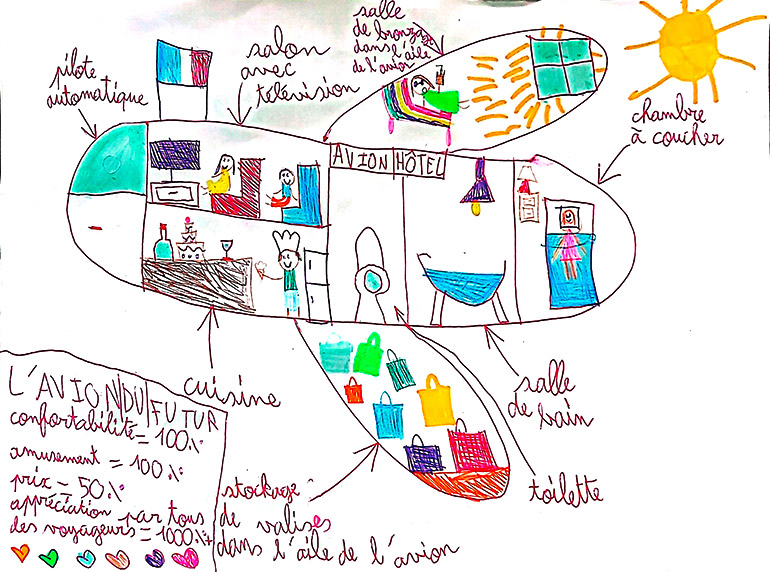 salle
de bronzage
dans l'aile
de l'avion
salon
avec
télévision
pilote
automatique
chambre
à coucher
AVION HÔTEL
cuisine
salle
de bain
toilette
stockage
de valises
dans l'aile de l'avion
L'AVION DU FUTUR
confortabilité = 100%
amusement = 100%
prix - 50%
appréciation par tous
des voyageurs = 1000%+